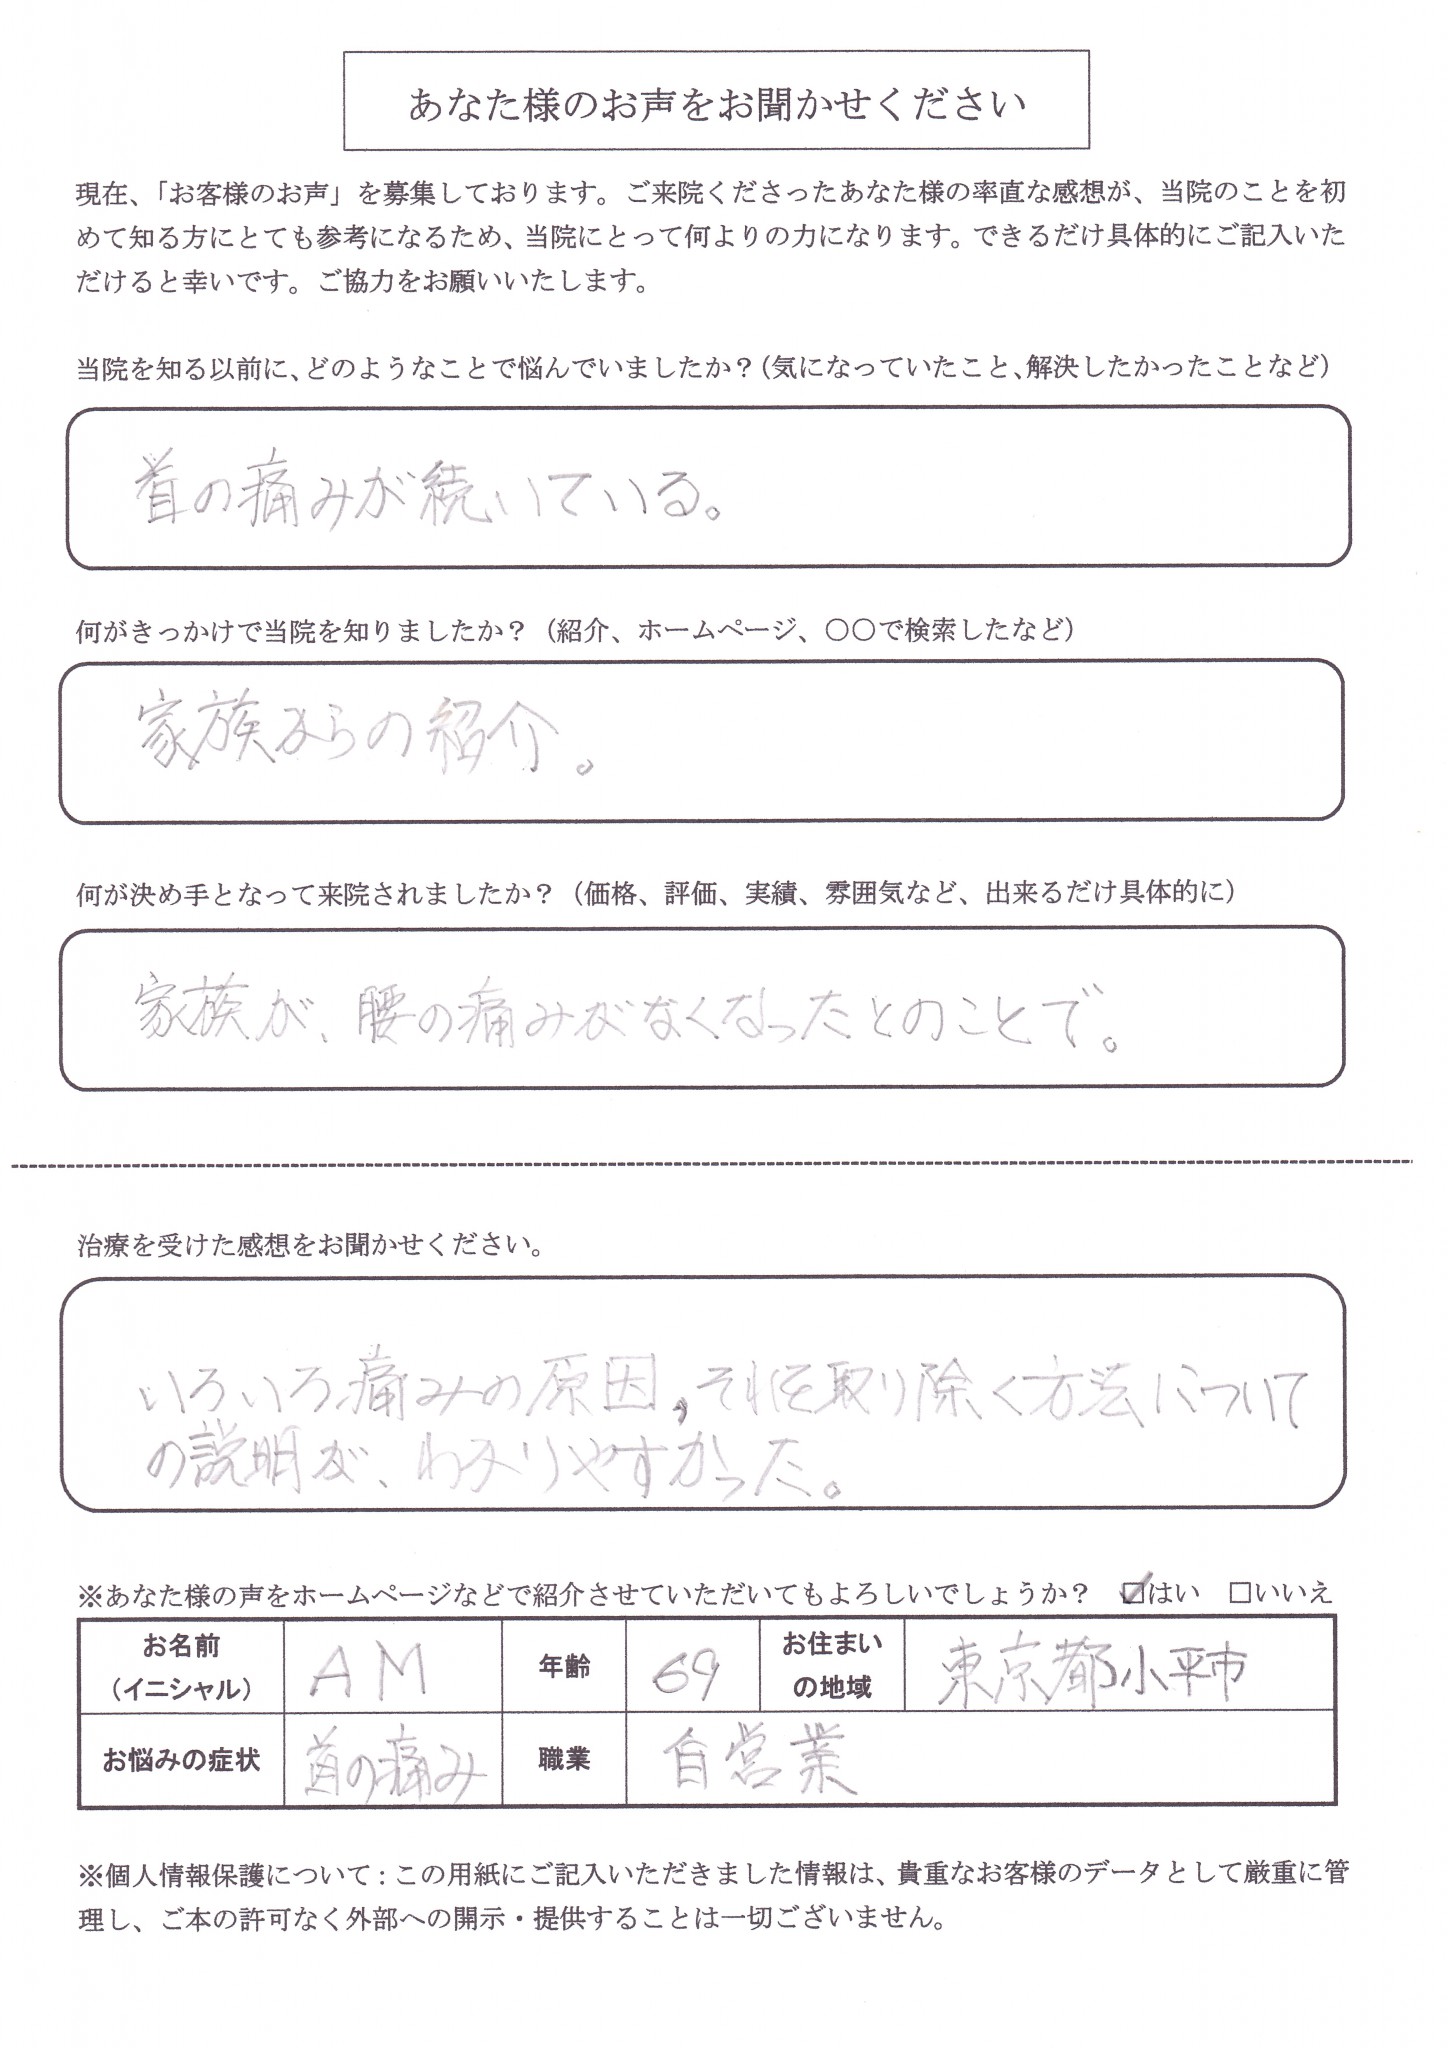 あなた様のお声をお聞かせください
現在、「お客様のお声」を募集しております。ご来院くださったあなた様の率直な感想が、当院のことを初
めて知る方にとても参考になるため、当院にとって何よりの力になります。できるだけ具体的にご記入いた
だけると幸いです。ご協力をお願いいたします。
当院を知る以前に、どのようなことで悩んでいましたか？（気になっていたこと、解決したかったことなど）
首の痛みが続いている。
何がきっかけで当院を知りましたか？（紹介、ホームページ、〇〇で検索したなど）
家族からの紹介。
何が決め手となって来院されましたか？（価格、評価、実績、雰囲気など、出来るだけ具体的に）
家族が、腰の痛みがなくなったとのことで。
治療を受けた感想をお聞かせください。
いろいろ痛みの原因,それを取り除く方法について
の説明が、わかりやすかった。
※あなた様の声をホームページなどで紹介させていただいてもよろしいでしょうか？ ☑はい □いいえ
お名前
（イニシャル）
AM
年齢
69
お住まい
の地域
東京都小平市
お悩みの症状
首の痛み
職業
自営業
※個人情報保護について：この用紙にご記入いただきました情報は、貴重なお客様のデータとして厳重に管
理し、ご本の許可なく外部への開示・提供することは一切ございません。